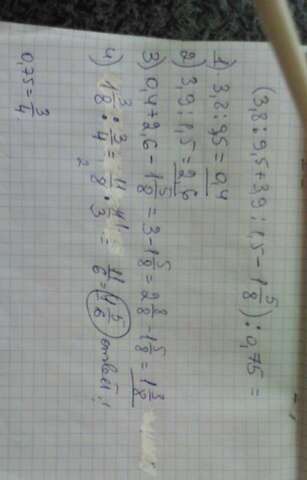 (3,8:9,5+3,9:1,5-1 5/8):0,75=
1) 3,8:9,5=0,4
2) 3,9:1,5=2,6
3) 0,4+2,6-1 5/8=3-1 5/8=2 8/8-1 5/8=1 3/8
4) 1 3/8:3/4=11/8·4/3=11/6=1 5/6 ответ!
0,75=3/4